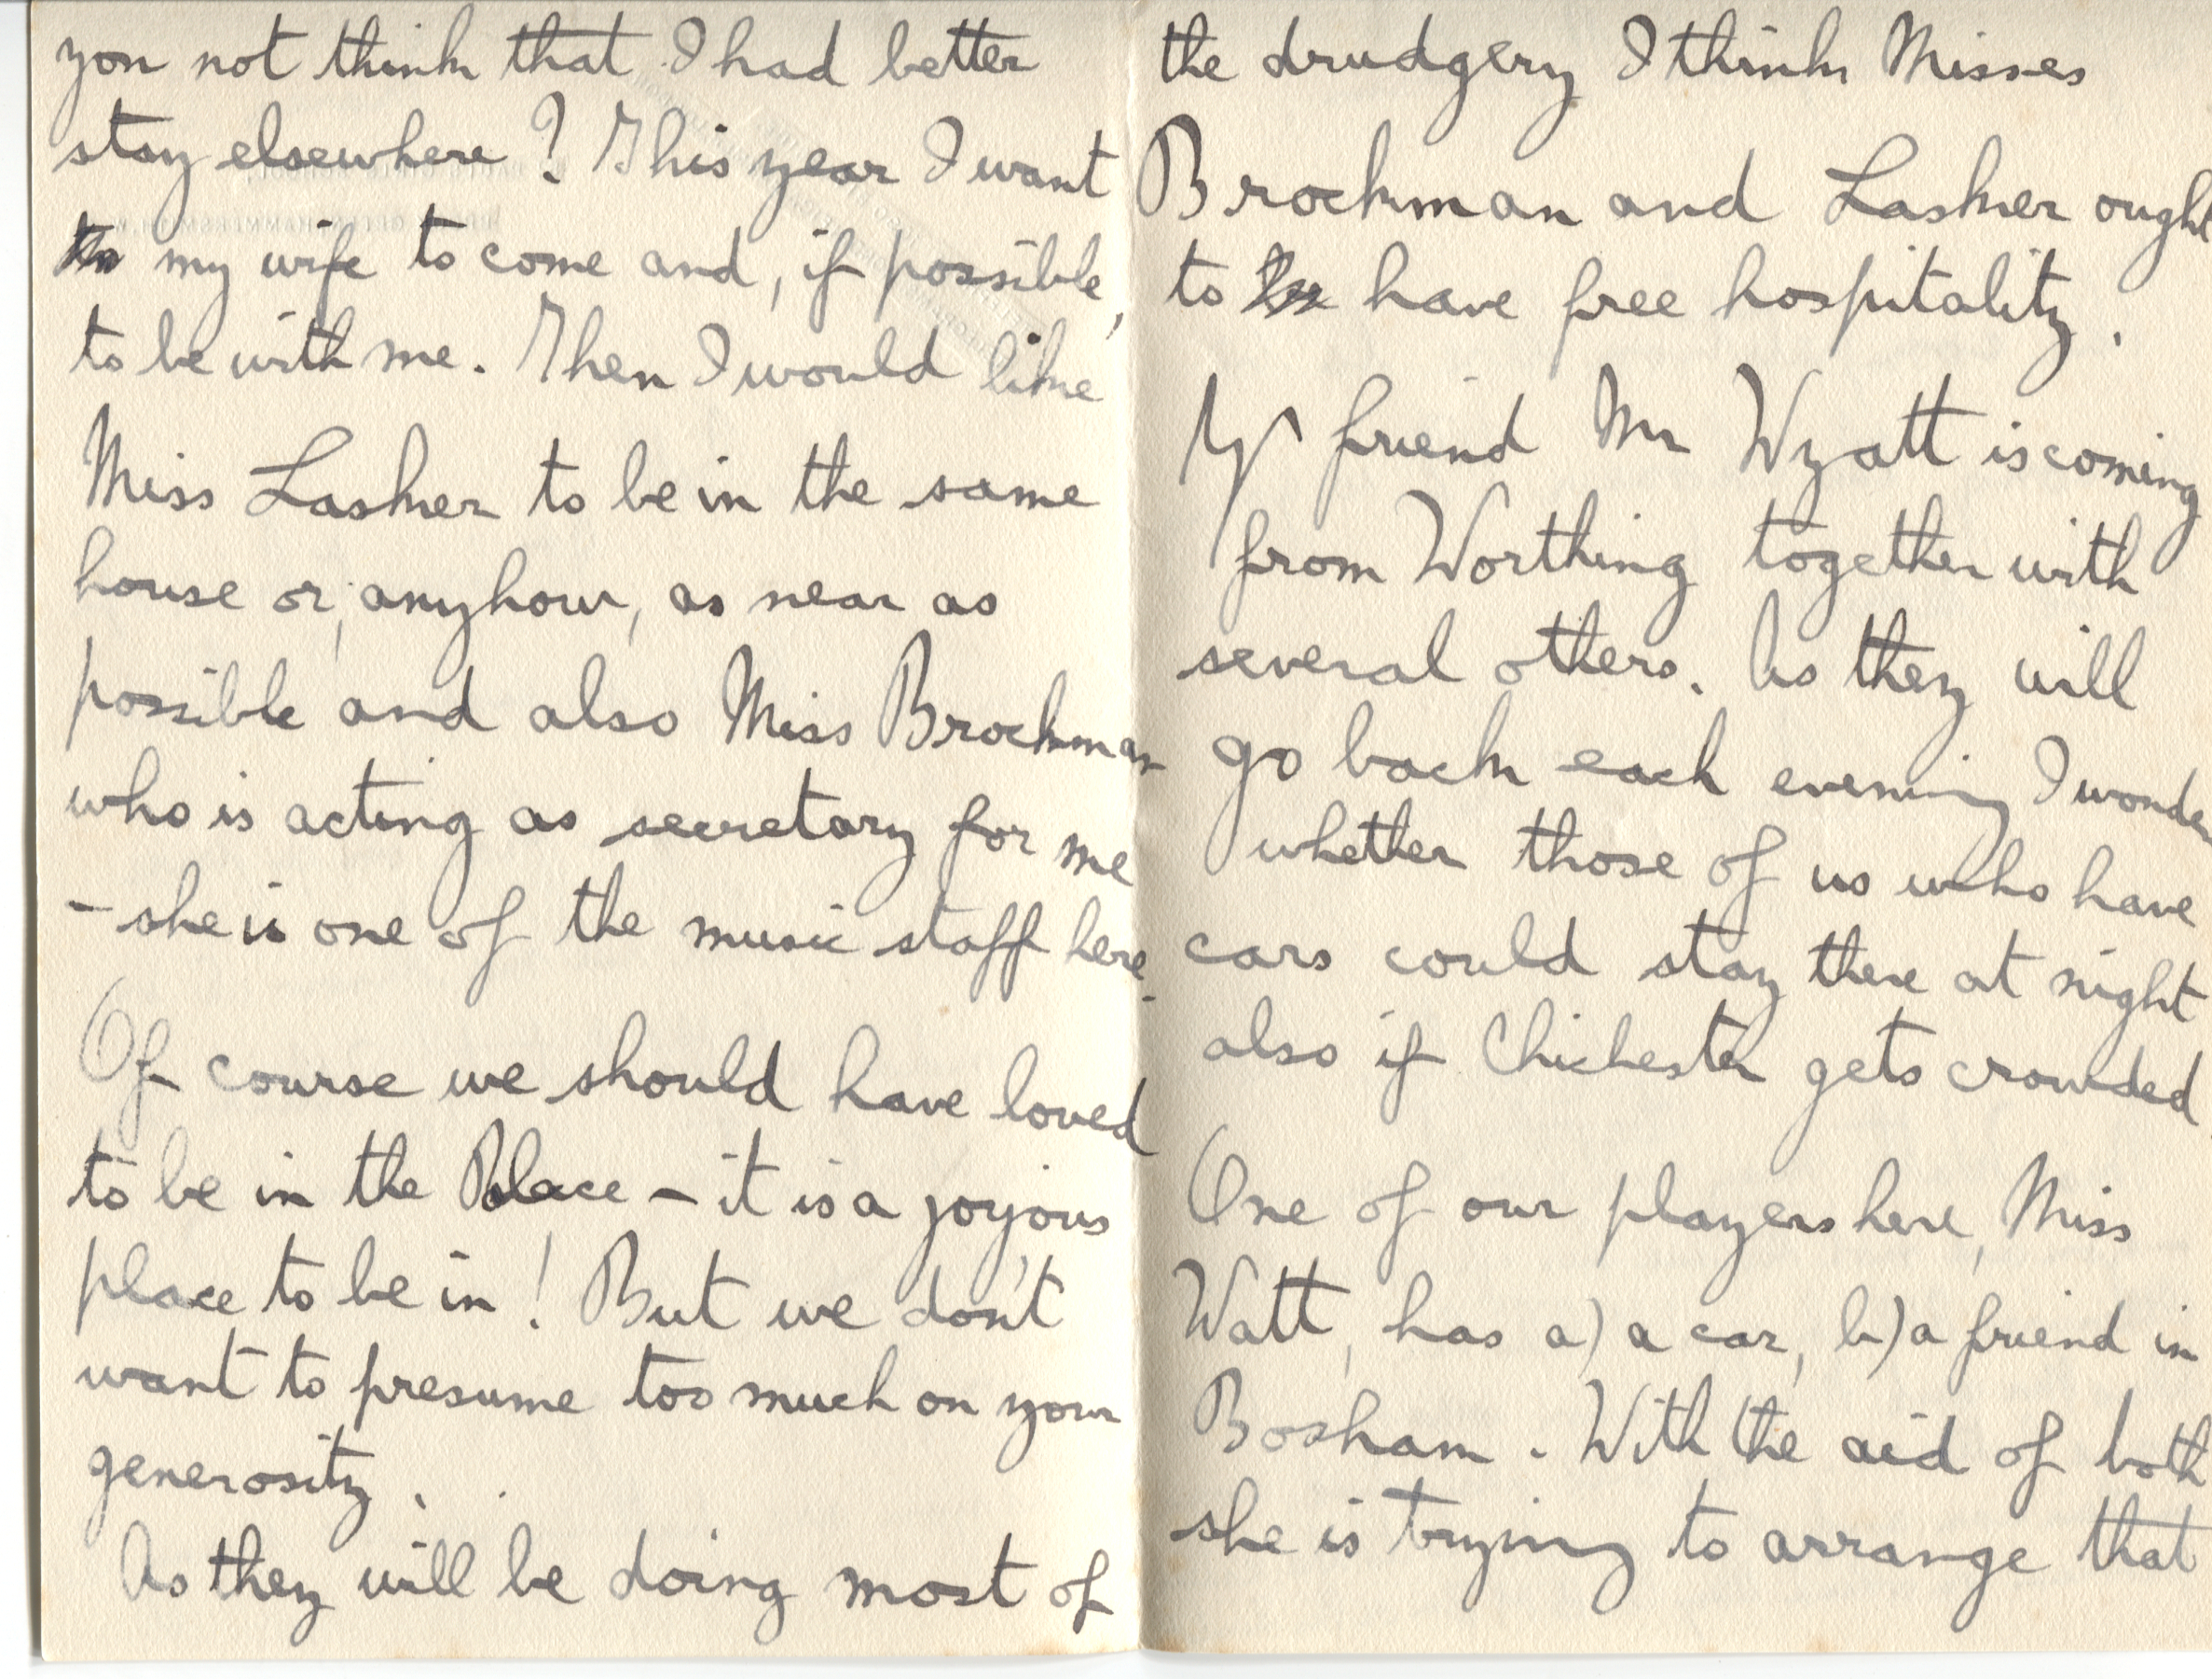 you not think that I had better
stay elsewhere? This year I want
my wife to come and, if possible,
to be with me. Then I would like
Miss Lasker to be in the same
house or, anyhow, as near as
possible and also Miss Brockman
who is acting as secretary for me
- she is one of the music staff here.
Of course we should have loved
to be in the Palace - it is a joyous
place to be in! But we don't
want to presume too much on your
generosity.
As they will be doing most of
the drudgery I think Misses
Brockman and Lasker ought
to have free hospitality.
Yr friend Mr Wyatt is coming
from Worthing together with
several others. As they will
go back each evening I wonder
whether those of us who have
cars could stay there at night
also if Chichester gets crowded
One of our players here, Miss
Watt, has a) a car, b) a friend in
Bosham. With the aid of both
she is trying to arrange that